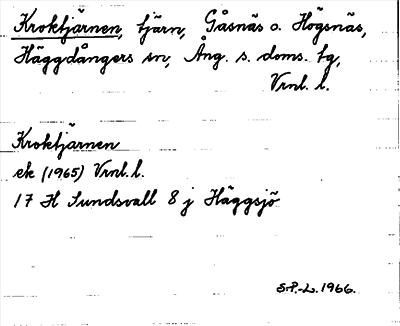 Kroktjärnen, tjärn, Gåsnäs o. Högsnäs,
Häggdångers sn, Ång. s. doms. tg,
Vrnl. l.
Kroktjärnen
ek (1965) Vrnl. l.
17 H Sundsvall 8 j Häggsjö
S.P.-L. 1966.